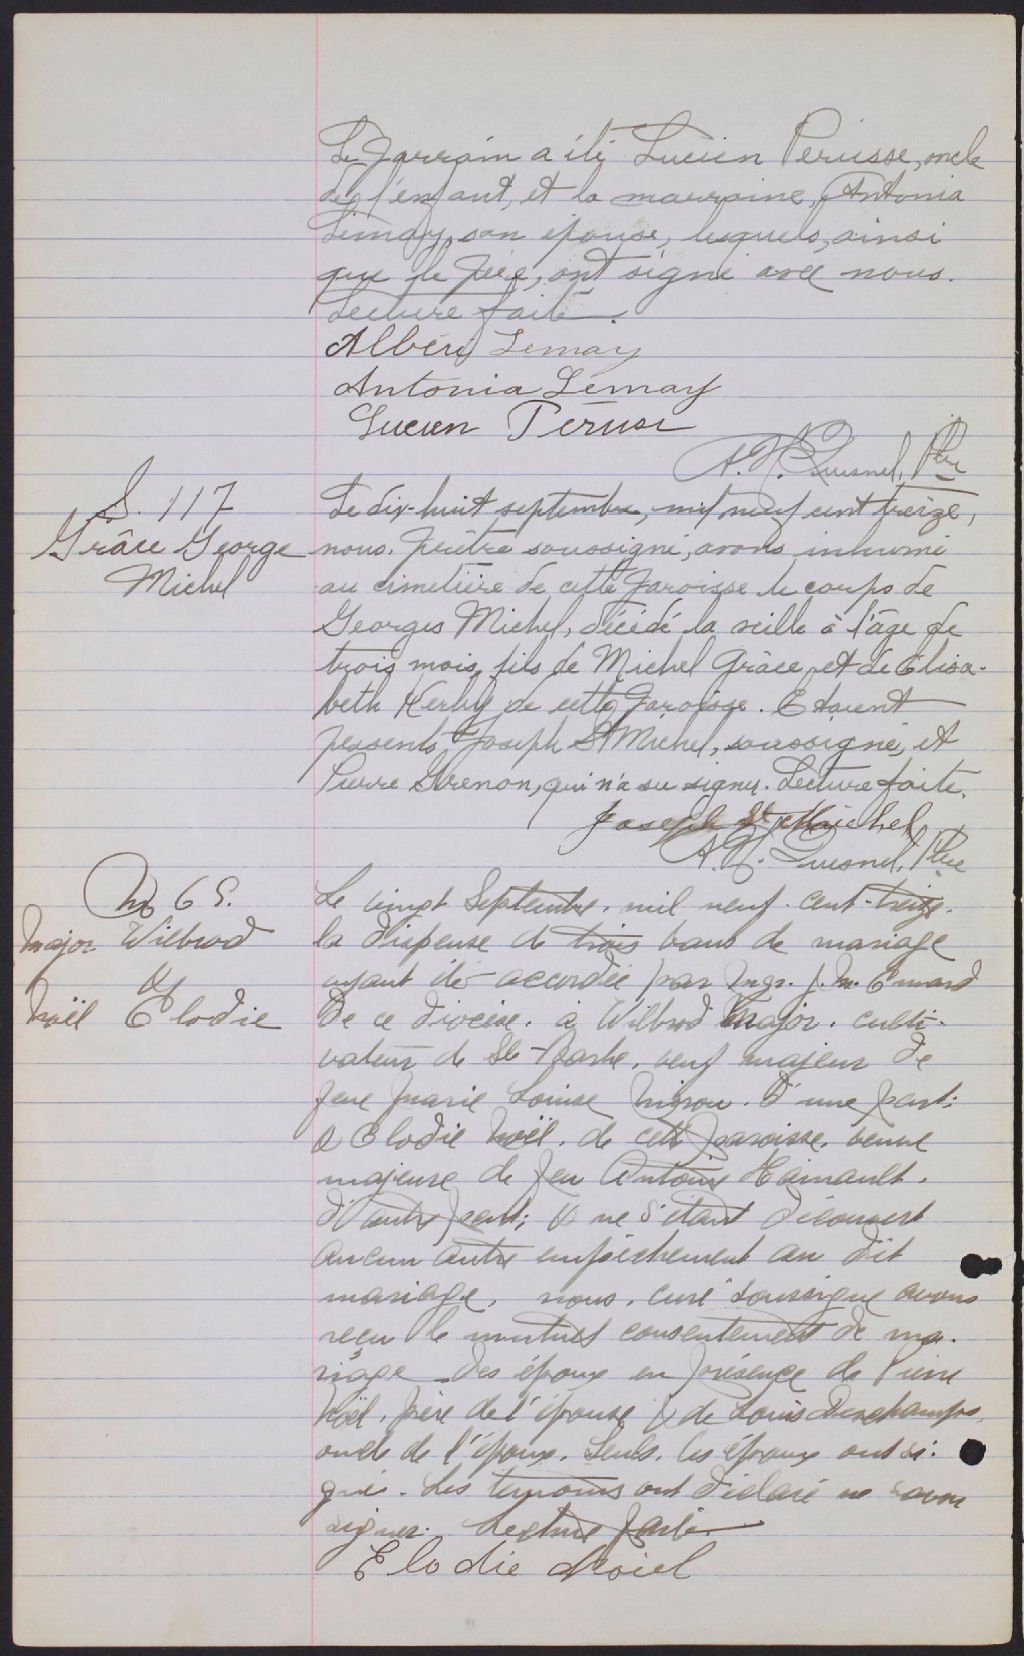 Le parrain a été Lucien Perusse, oncle
de l'enfant, et la marraine, Antonia
Lemay, son épouse, lesquels, ainsi
que le père, ont signé avec nous.
Lecture faite.
Albéric Lemay
Antonia Lemay
Lucien Peruse
Ptre
S. 117
Grâce George
Michel
Le dix-huit septembre, mil neuf cent treize,
nous, prêtre soussigné, avons inhumé
au cimetière de cette paroisse le corps de
Georges Michel, décédé la veille à l'âge de
trois mois, fils de Michel Grâce et de Elisa-
beth Kerby de cette paroisse. Etaient
présents, Joseph St Michel, soussigné, et
Pierre Grenon, qui n'a su signer. Lecture faite.
Joseph St Michel
Ptre
M 65.
Major Wilbrod
&
Noël Elodie
Le vingt Septembre, mil neuf-cent-treize,
la dispense de trois bans de mariage
ayant été accordée par Mgr. J. M. Emard
de ce diocèse, à Wilbrod Major, culti-
vateur de Ste-Barbe, veuf majeur de
feue Marie Louise d'une part;
& Elodie Noël, de cette paroisse, veuve
majeure de feu Antoine Hainault,
d'autre part; & ne s'étant découvert
aucun autre empêchement au dit
mariage, nous, curé soussigné avons
reçu le mutuel consentement de ma-
riage des époux en présence de Pierre
Noël, père de l'épouse & de Louis Deschamps,
oncle de l'époux. Seuls, les époux ont si-
gné. Les témoins ont déclaré ne savoir
signer. Lecture faite.
Elodie Noiel